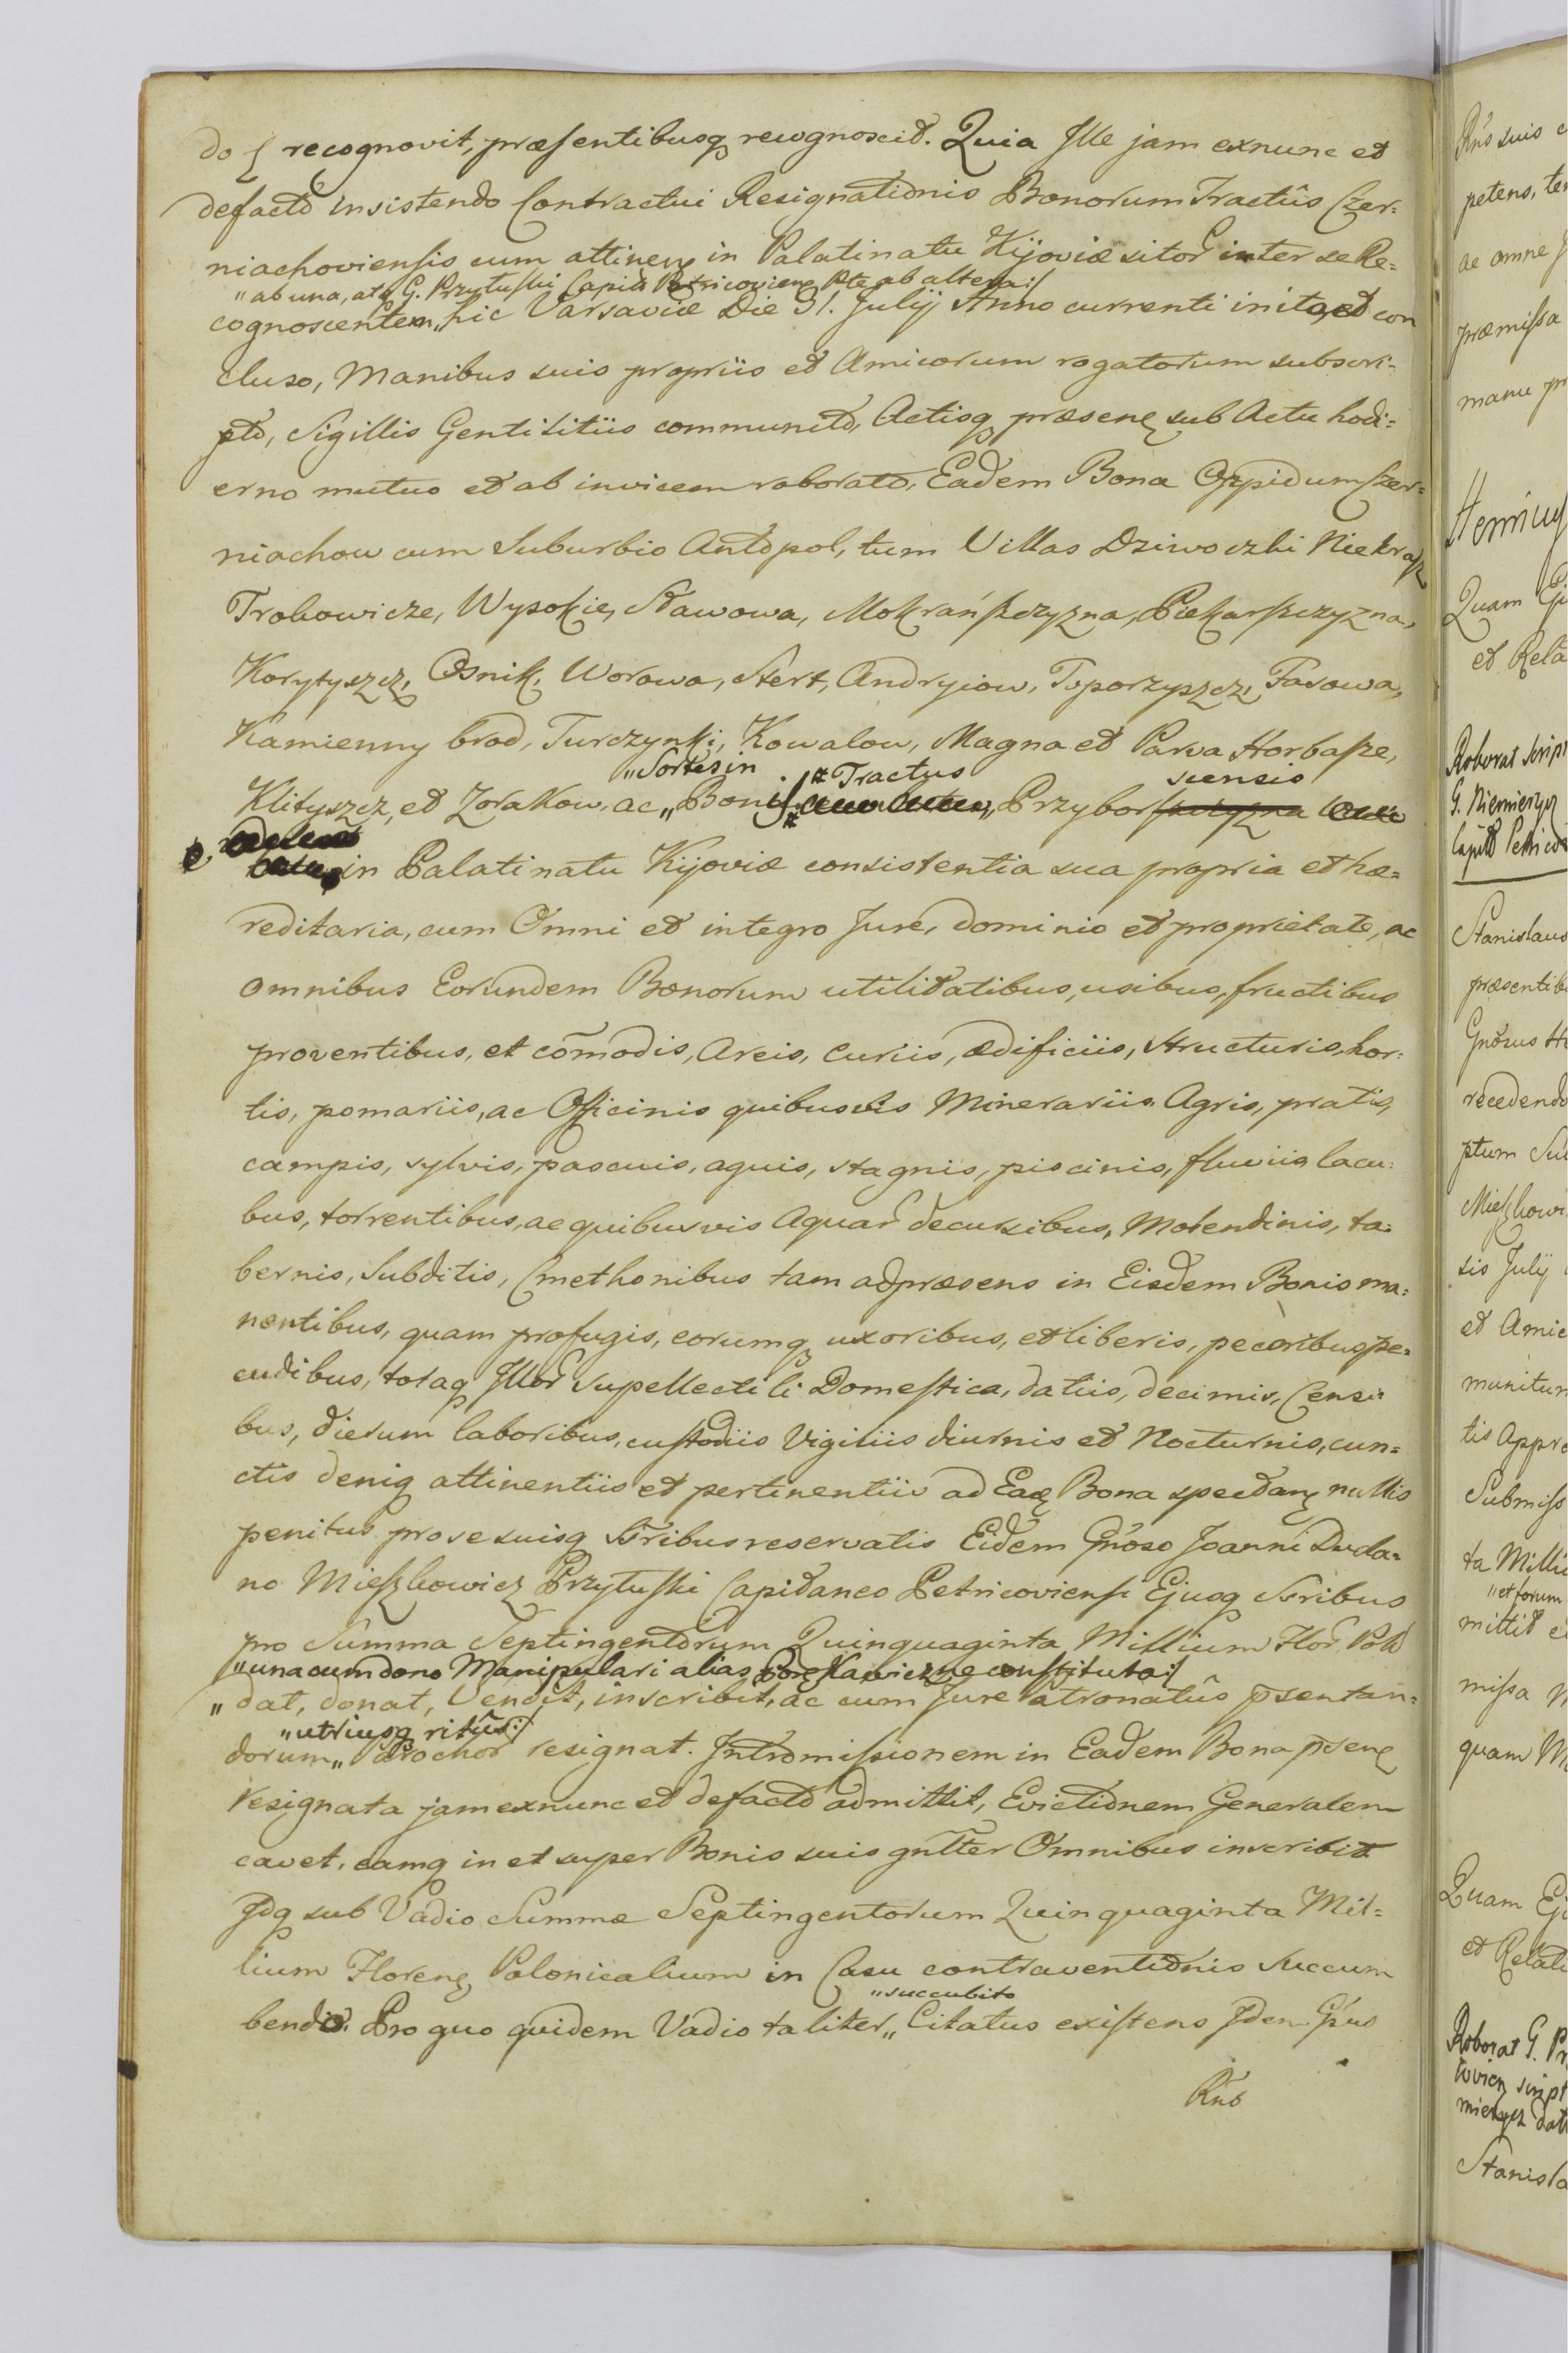 recognovit, præsentibusq recognoscit. Quia Ille jam exnunc et
defacto insistendo Contractui Resignationis Bonorum Tractûs Czer=
niachoviensis cum attinen in Palatinatu Kijoviæ sitor inter se Re=
"ab una, atq G. Przytuski Capit Petricovien Rte ab altera:/
cognoscentem" hic Varsaviæ Die 31. Julij Anno currenti inito, et con
cluso, Manibus suis propriis et Amicorum rogatorum subscri=
pto, Sigillis Gentilitiis communito, Actisq præsen sub Actu hodi=
erno mutuo et ab invicem roborato, Eadem Bona Oppidum Czer=
niachow cum Suburbio Antopol, tum Villas Dziwoczki Niekrasz
Trokowicze, Wysokie, Stawowa, Mokrańszczyzna, Piekarszczyzna,
Korytyszcz, Osnik, Worowa, Stert, Andryiow, Toporzyszcz, Fasowa,
Kamienny brod, Turczynki, Kowalow, Magna et Parva Horbasze,
"Sortes in # Tractus scensis
Klityszcz, et Zorakow, ac " Bonis Przybor
in Palatinatu Kijoviæ consistentia sua propria et hæ=
reditaria, cum Omni et integro Jure, dominio et proprietate, ac
omnibus Eorundem Bonorum utilitatibus, usibus, fructibus
proventibus, et cõmodis, Areis, Curiis, ædificiis, structuris, hor=
tis, pomariis, ac Officinis quibusvis Minerariis, Agris, pratis,
campis, sylvis, pascuis, aquis, stagnis, piscinis, fluviis lacu=
bus, torrentibus, ac quibusvis Aquar decursibus, Molendinis, ta=
bernis, Subditis, Cmethonibus tam ad præsens in Eisdem Bonis ma=
nentibus, quam profugis, eorumq uxoribus, et liberis, pecoribus, pe=
cudibus, totaq Illor Supellectili Domestica, datiis, decimis, Censi=
bus, dierum laboribus, custodiis Vigiliis diurnis et Nocturnis, cun=
ctis deniq attinentiis et pertinentiis ad Ea Bona spectan nullis
penitus pro se suisq Sribus reservatis Eidem Gnoso Joanni Ducla=
no Mieszkowicz Przytuski Capitaneo Petricoviensi Ejusq Sribus
pro Summa Septingentorum Quinquaginta Millium Flor Poll
"una cum dono Manipulari alias constituto:/
" dat, donat, Vendit, inscribit, ac cum Jure Patronatûs p̃sentan=
"utriusq ritûs:/
dorum" Parochor resignat. Intromissionem in Eadem Bona p̃sen
resignata jam exnunc et defacto admittit, Evictionem Generalem
cavet, eamq in et super Bonis suis gñlter Omnibus inscribit
Idq sub Vadio Summæ Septingentorum Quinquaginta Mil=
lium Floren Polonicalium in Casu contraventionis Succum
"succubito
bendo. Pro quo quidem Vadio taliter" Citatus existens Idem Gñus
Rñs
Rñs suis
petens,
ac omne
præmissa
manu
Quam
et
Roborat
G. Niemierycz
Capit
Stanislaus
Gnosus
recedendo
ptum
sis Julij
et Amic
munitum
tis
Submiss
ta
"et forum
mittit
missa
quam
Quam
et
Roborat G.